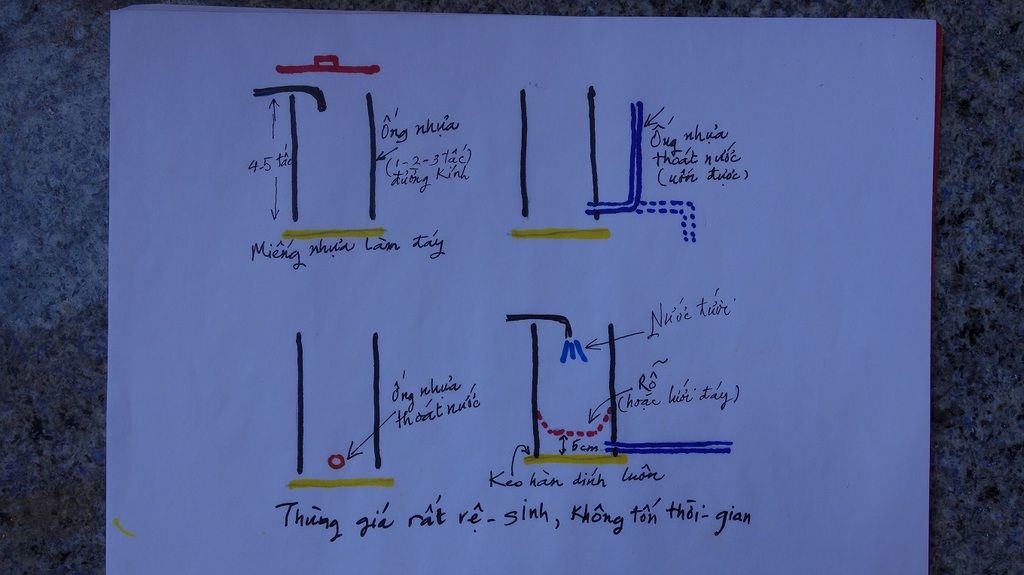 4-5 tấc
Ống nhựa
(1-2-3 tấc)
đường kính
Miếng nhựa làm đáy
Ống nhựa
thoát nước
(uốn được)
Ống nhựa
thoát nước
Nước tưới
Rỗ
(hoặc lưới đáy)
5cm
Keo hàn dính luôn
Thùng giá rất vệ-sinh, không tốn thời-gian